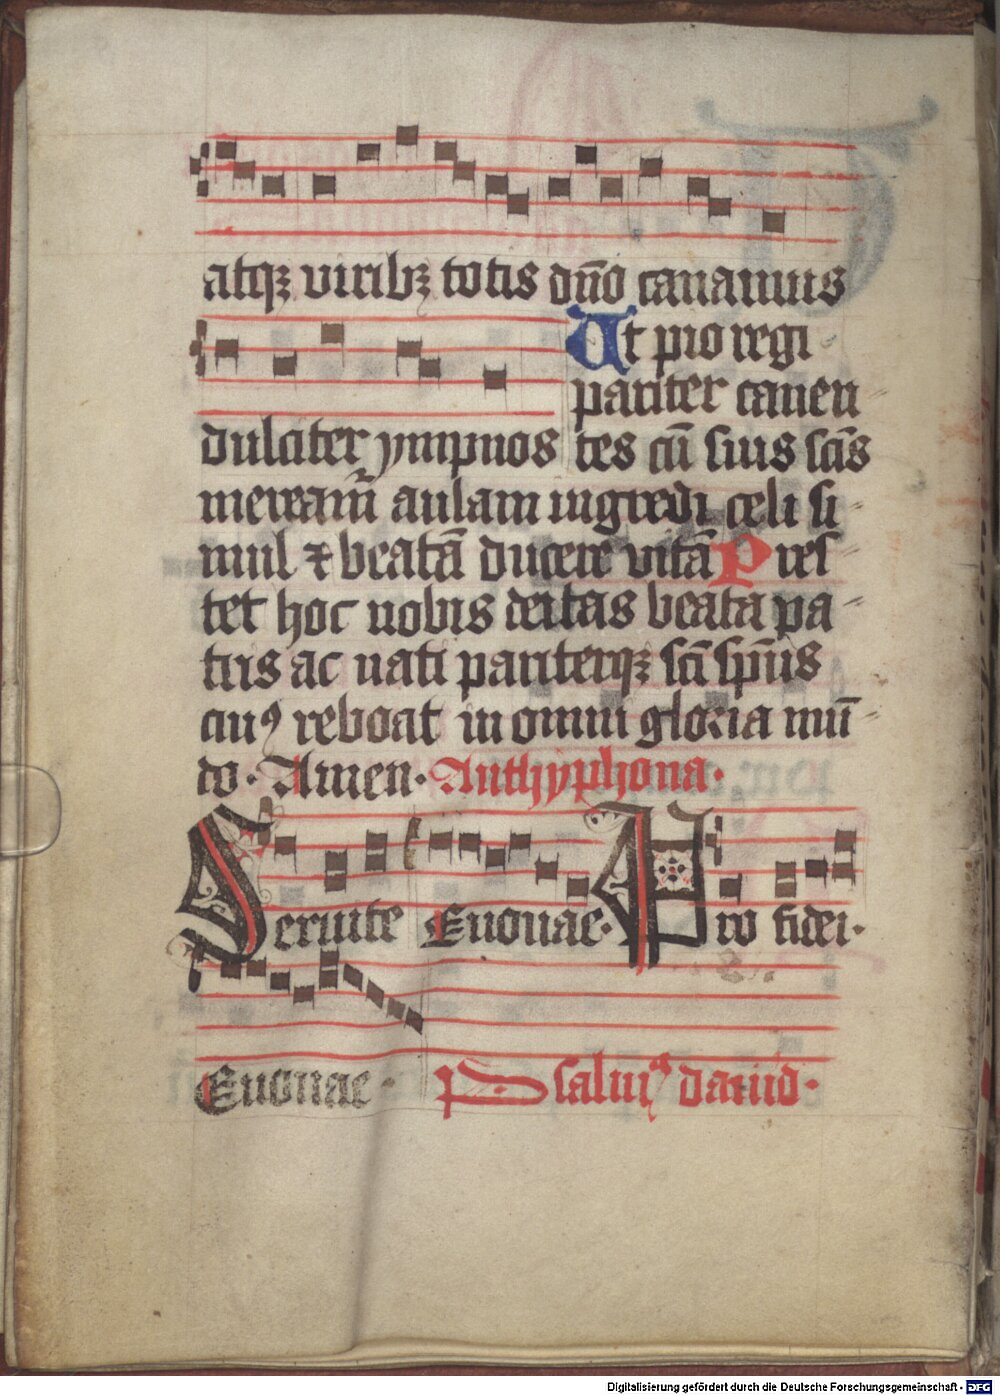 atqꝫ viribꝫ totis dn̄o canamus
dulciter ympnos
Ut pio regi
pariter canen
tes cū suis scīs
mereamr̄ aulam ingredi celi si
mul ⁊ beatā ducere vitā Pres
tet hoc nobis deitas beata pa
tris ac nati pariterqꝫ scī spūs
cuiꝰ reboat in omni gloria mū
do. Amen. Anthyphona.
Seruite Euouae. Pro fidei.
Euouae. Psalmꝰ dauid.
Digitalisierung gefördert durch die Deutsche Forschungsgemeinschaft - DFG